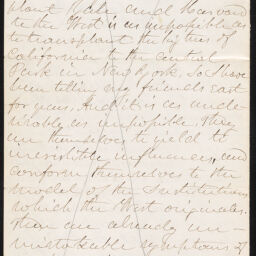 plant Yale and Harvard
to the West is as impossible as
to transplant the big trees of
California to the central
Park in New York. So I have
been telling my friends east
for years. And it is as unde-
sirably as impossible. They
in themselves to yield to
irresistible influences, and
conform themselves to the
model of the Institutions
which the West originates.
There are already un-
mistakable symptoms of